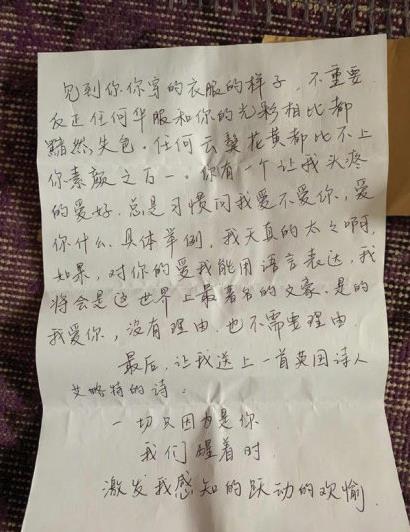 见到你你穿的衣服的样子，不重要
反正任何华服和你的光彩相比都
黯然失色。任何云鬓花黄都比不上
你素颜之百一。你有一个让我头疼
的爱好，总是习惯问我爱不爱你，爱
你什么，具体举例，我天真的太太啊，
如果，对你的爱我能用语言表达，我
将会是这世界上最著名的文豪。是的
我爱你，没有理由，也不需要理由
最后，让我送上一首英国诗人
艾略特的诗：
一切只因为是你
我们醒着时
激发我感知的跃动的欢愉